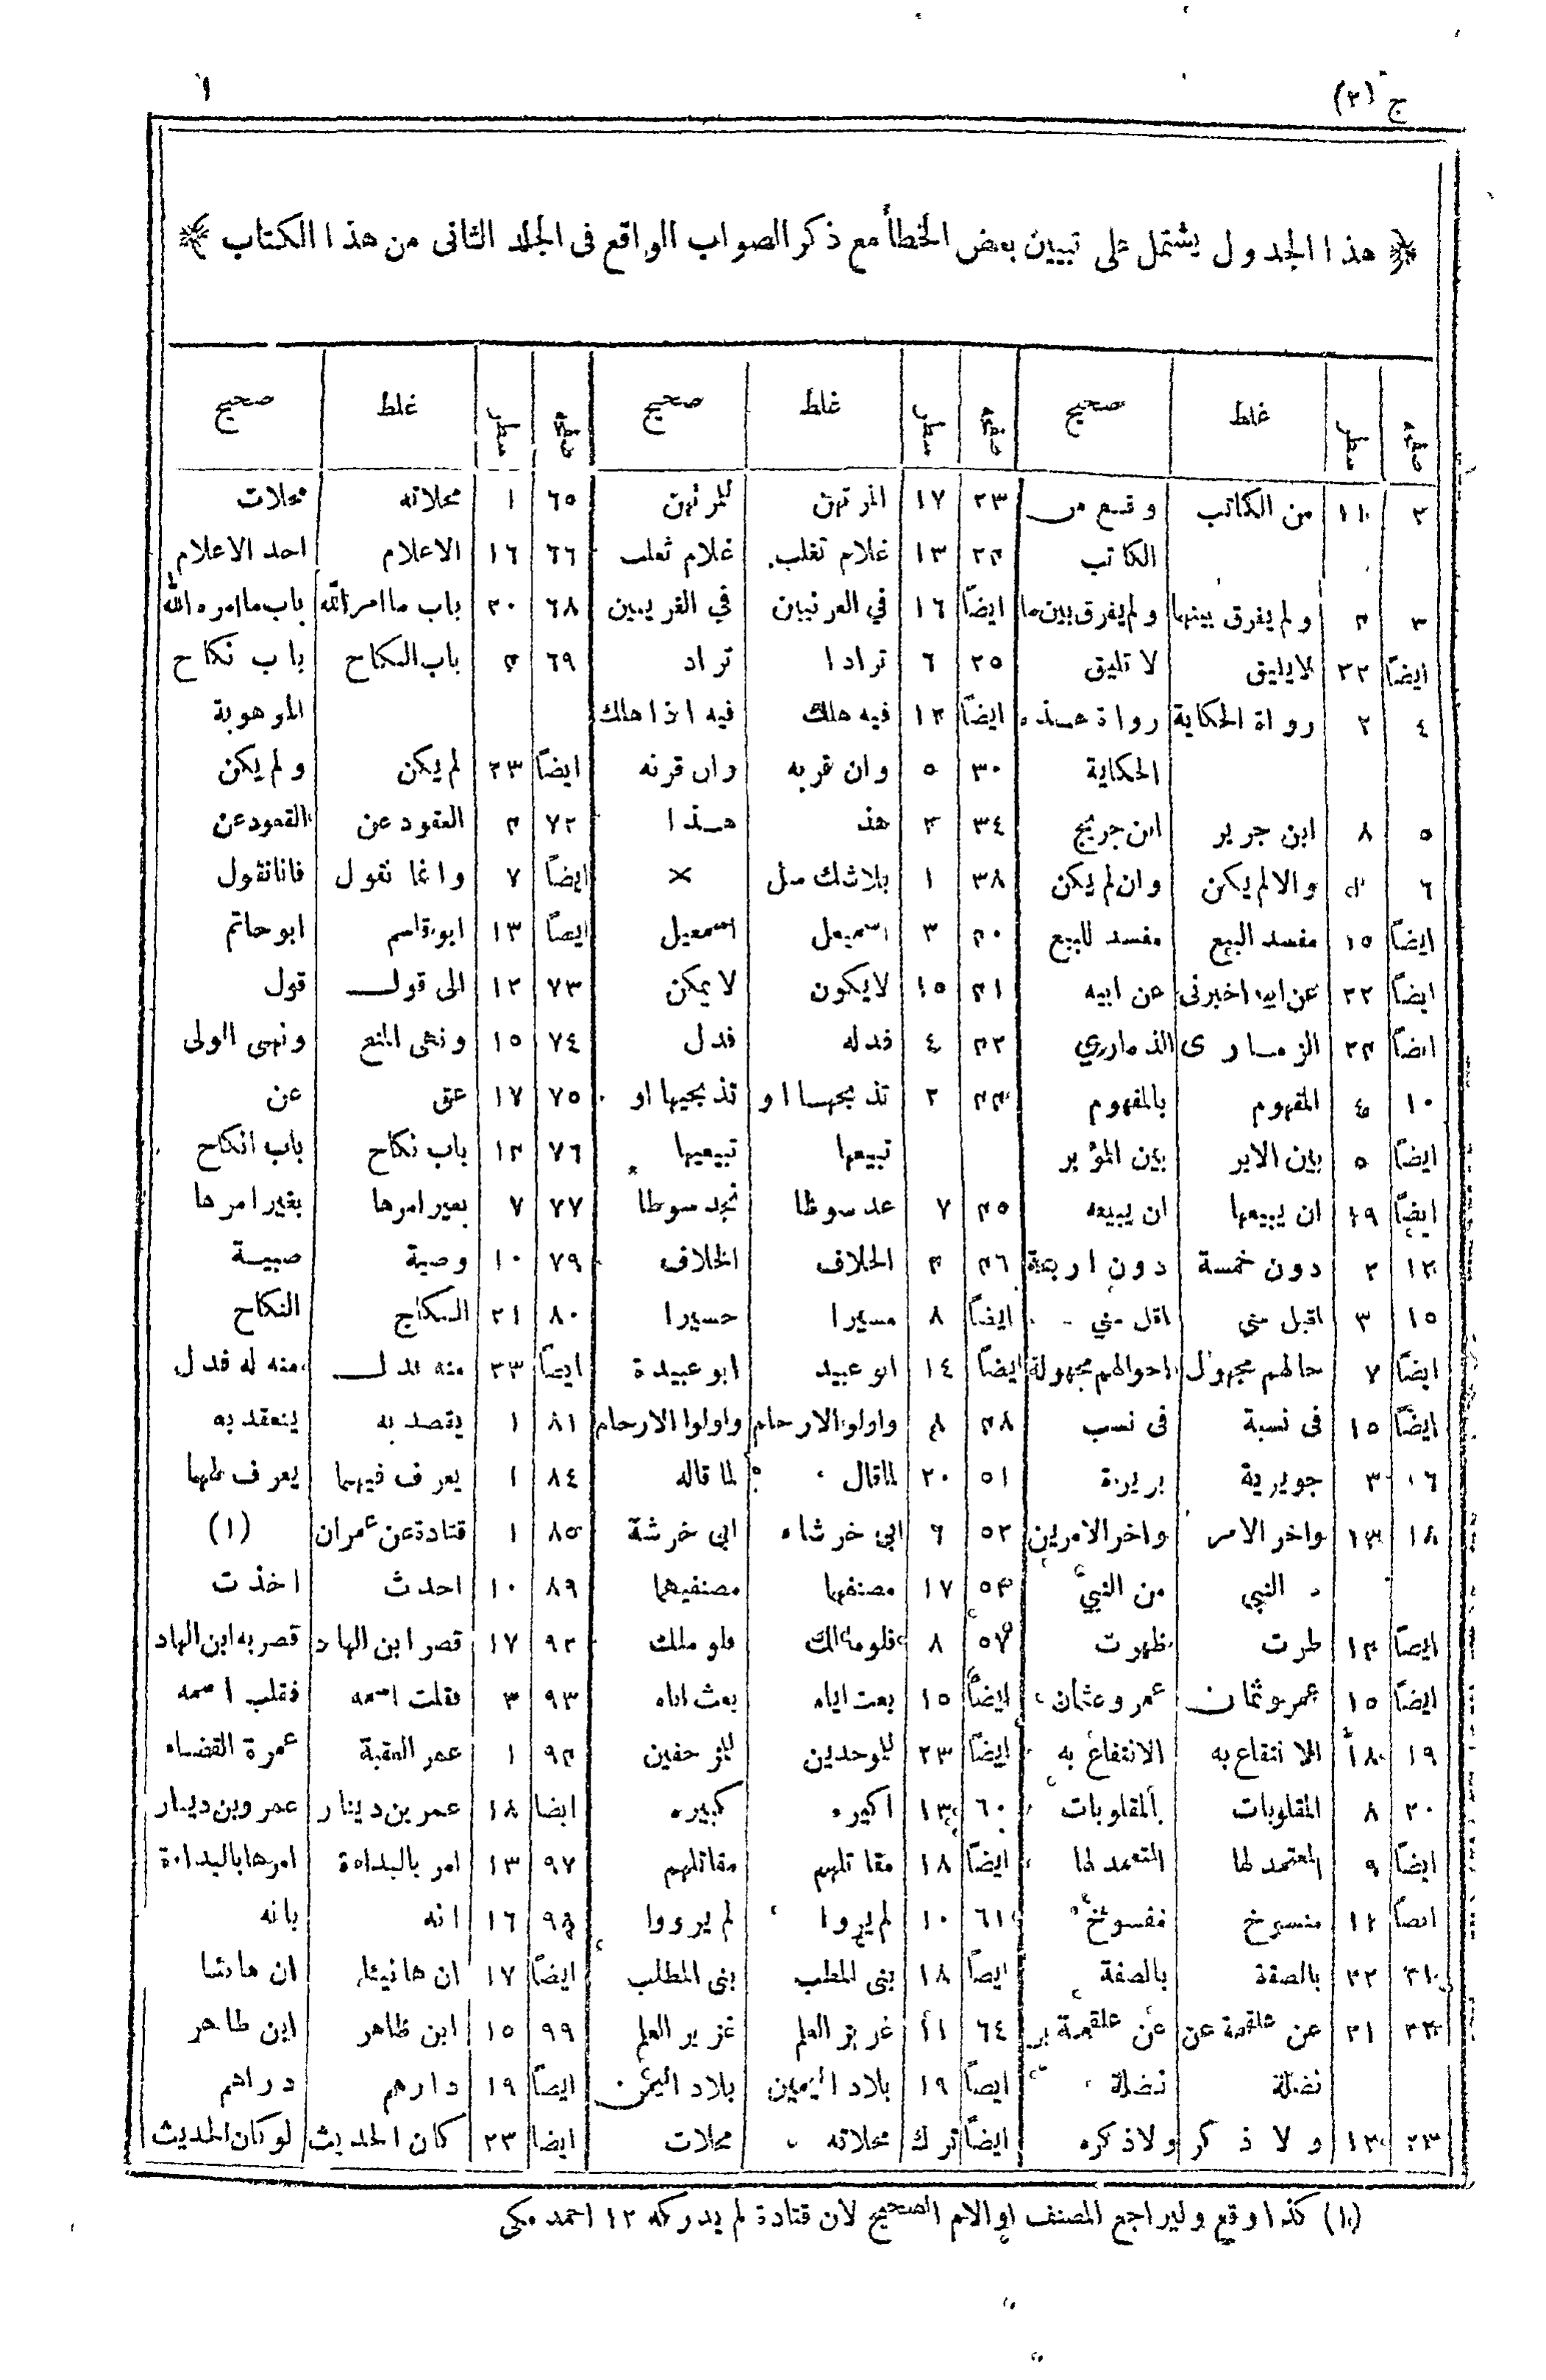 ج (٢) ١
هذا الجدول يشتمل على تبيين بعض الخطأ مع ذكر الصواب الواقع فى الجلد الثانى من هذا الكتاب
صفحه سطر غلط صحيح صفحه سطر غلط صحيح صفحه سطر غلط صحيح
٢ ١١ من الكاتب وقع من ٢٣ ١٧ المرتهن للمرتهن ٦٥ ١ محلاته محلات
الكاتب ٢٤ ١٣ غلام تغلب غلام ثعلب ٦٦ ١٦ الاعلام احد الاعلام
٣ ٤ ولم يفرق بينهما ولم يفرق بين ما ايضاً ١٦ في العرنيين في القريبين ٦٨ ٢٠ باب ما امر الله باب ما امره الله
ايضاً ٢٢ لا يليق لا تليق ٢٥ ٦ ترادا تراد ٦٩ ٤ باب النكاح باب نكاح
٤ ٢ رواة الحكاية رواة هذه ايضاً ١٢ فيه هلك فيه اذا هلك الموهوبة
الحكاية ٣٠ ٥ وان قربه وان قرنه ايضاً ٢٣ لم يكن ولم يكن
٥ ٨ ابن جرير ابن جريج ٣٤ ٣ هذ هذا ٧٢ ٤ العقود عن القعود عن
٦ والا لم يكن وان لم يكن ٣٨ ١ بلاشك مثل × ايضاً ٧ وانما نقول فانا نقول
ايضاً ١٥ مفسد البيع مفسد للبيع ٤٠ ٣ اسميعل اسمعيل ايضاً ١٣ ابو قاسم ابو حاتم
ايضاً ٢٢ عن ابيه اخبرنى عن ابيه ٤١ ١٥ لا يكون لا يمكن ٧٣ ١٢ الى قول قول
ايضاً ٢٤ الزمارى الذمارري ٤٢ ٤ فدله فدل ٧٤ ١٥ ونهى المنع ونهى الولى
١٠ ٤ المفهوم بالمفهوم ٤٤ ٢ تذبحها او تذبحيها او ٧٥ ١٧ عق عن
ايضاً ٥ بين الابر بين المؤبر تبيعها تبيعيها ٧٦ ١٢ باب نكاح باب انكاح
ايضاً ١٩ ان يبيعها ان يبيعه ٤٥ ٧ عد سوطا نجد سوطا ٧٧ ٧ بعير امرها بغير امرها
١٢ ٢ دون خمسة دون اربعة ٤٦ ٤ الحلاف الخلاف ٧٩ ١٠ وصية صبية
١٥ ٣ اقبل منى اقل منى ايضاً ٨ مسيرا حسيرا ٨٠ ٢١ النكاح النكاح
ايضاً ٧ حالهم مجهول احوالهم مجهولة ايضاً ١٤ ابو عبيد ابو عبيدة ايضاً ٢٣ منه فدل منه له فدل
ايضاً ١٥ فى نسبة فى نسب ٤٨ ٨ واولو الارحام واولوا الارحام ٨١ ١ يقصد به ينعقد به
١٦ ٣ جويرية بريرة ٥١ ٢٠ لما قال لما قاله ٨٤ ١ يعرف فيهما يعرف لهما
١٨ ١٣ واخر الامر واخر الامرين ٥٢ ٦ ابى خرشاه ابى خرشة ٨٥ ١ قتادة عن عمران (١)
النبي من النبي ٥٤ ١٧ مصنفها مصنفيهما ٨٩ ١٠ احدث اخذت
ايضاً ١٤ طرت ظهرت ٥٧ ٨ فلو مالك فلو ملك ٩٢ ١٧ قصر ابن الهاد قصر به ابن الهاد
ايضاً ١٥ عمر وثمان عمر وعثمان ايضاً ١٥ بعت اباه بعث اباه ٩٣ ٣ فقلت اسمه فقلب اسمه
١٩ ١٨ اللا نتفاع به الانتفاع به ايضاً ٢٣ للوحدين للزحفين ٩٤ ١ عمر العقبة عمرة القضاء
٢٠ ٨ المقلوبات بالمقلوبات ٦٠ ١٣ اكيره كبيره ايضا ١٨ عمر بن دينار عمرو بن دينار
ايضاً ٩ المعتمد لها المتعمد لها ايضاً ١٨ مقاتلهم مقاتلهم ٩٧ ١٣ امر بالبداءة امرها بالبداءة
ايضاً ١٢ منسوخ ففسوخ ٦١ ١٠ لم يروا لم يرووا ٩٨ ١٦ انه بانه
٢١ ٢٢ بالصفة بالصفة ايضاً ١٨ بنى المطب بنى المطلب ايضاً ١٧ ان هانيئا ان هانئا
٢٢ ٢١ عن علقمة عن عن علقمة بن ٦٤ ١١ غريز العلم غزير العلم ٩٩ ١٥ ابن ظاهر ابن طاهر
نضلة نضلة ايضاً ١٩ بلاد اليمين بلاد اليمن ايضاً ١٩ دارهم دراهم
٢٣ ١٣ ولا ذكر ولا ذكره ايضاً ترك محلاته محلات ايضا ٢٣ كان الحديث لو كان الحديث
(١) كذا وقع وليراجع المصنف او الام الصحيح لان قتادة لم يدركه ١٢ احمد مكى